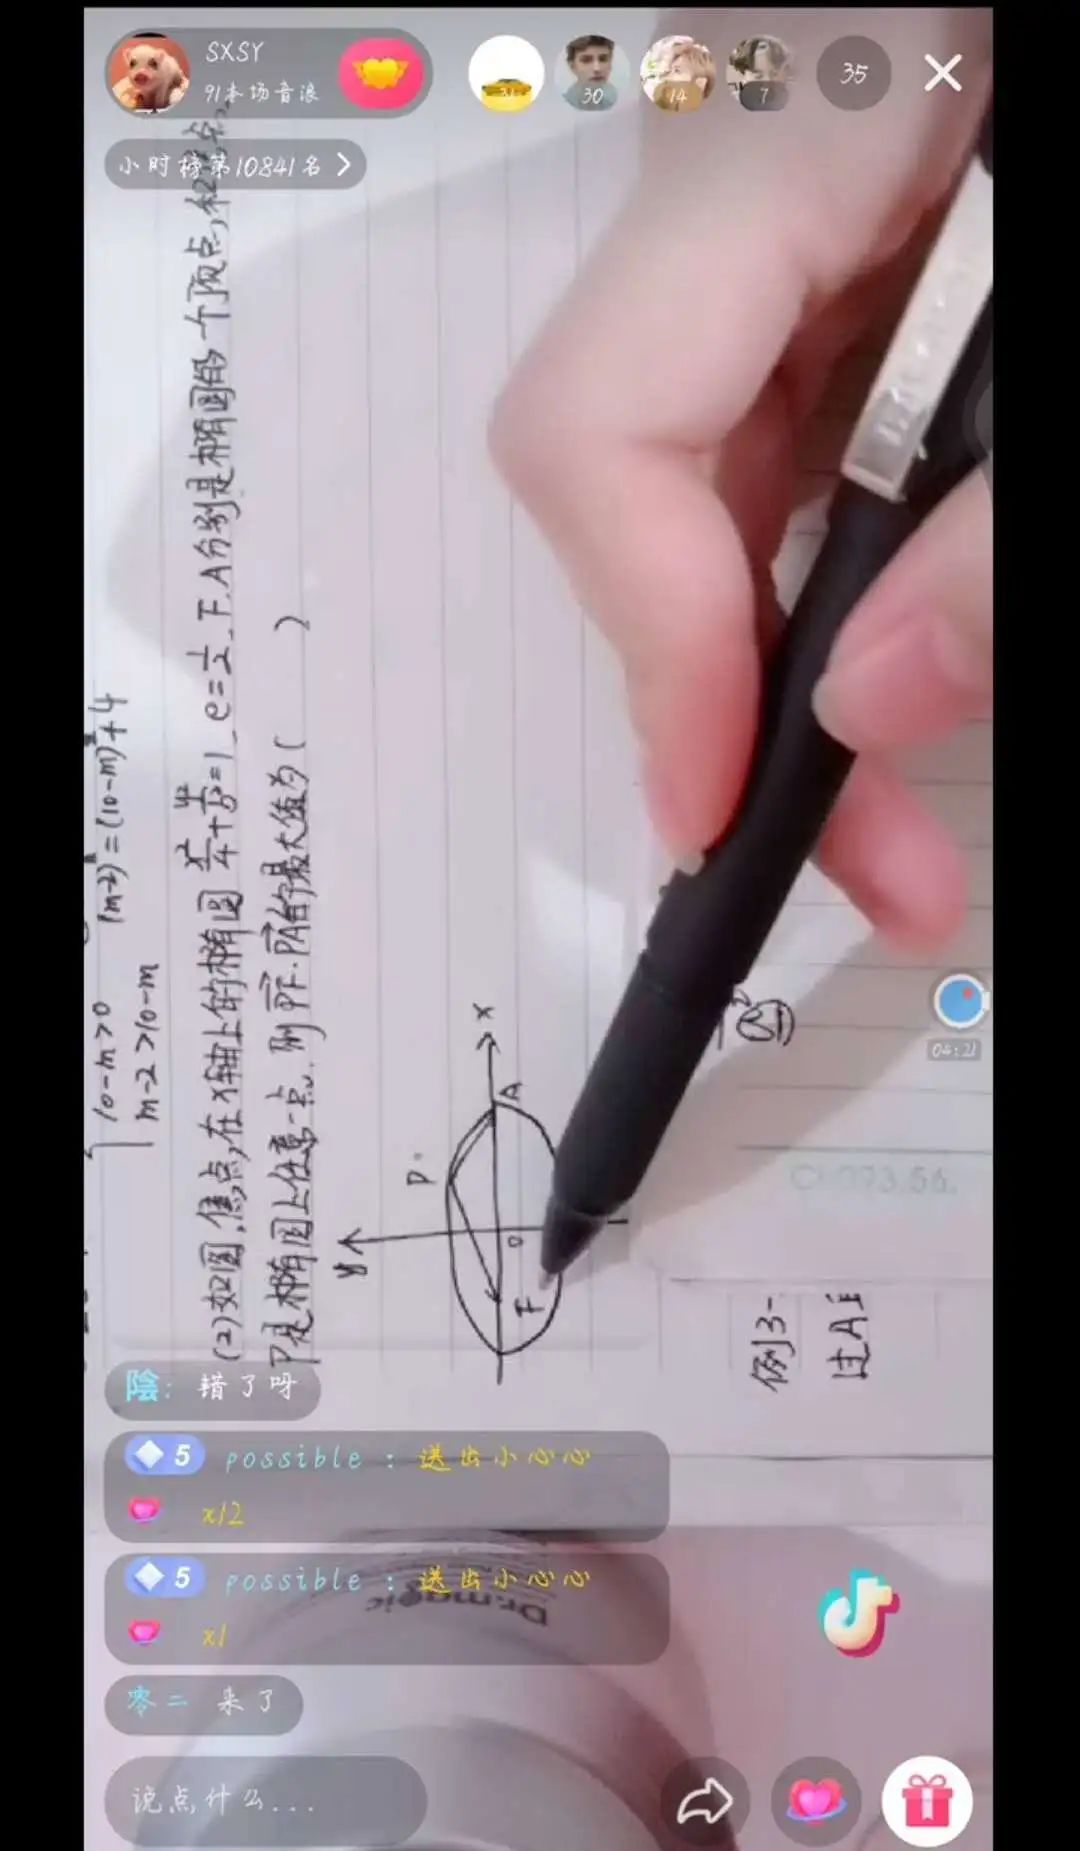 SXSY
91本场音浪
31
30
14
7
35
小时榜第10841名
10-m>0
m-2>10-m
(m-2)²=(10-m)²+4
(2)如图,焦点在x轴上的椭圆 x²/4+y²/b²=1, e=1/2, F,A分别是椭圆的一个顶点,
P是椭圆上任意一点,则PF·PA的最大值为( )
y
x
P
A
O
F
04:21
例3-
过A且
陰: 错了呀
5 possible : 送出小心心
x12
5 possible : 送出小心心
x1
Dr.magic
零二 来了
说点什么...